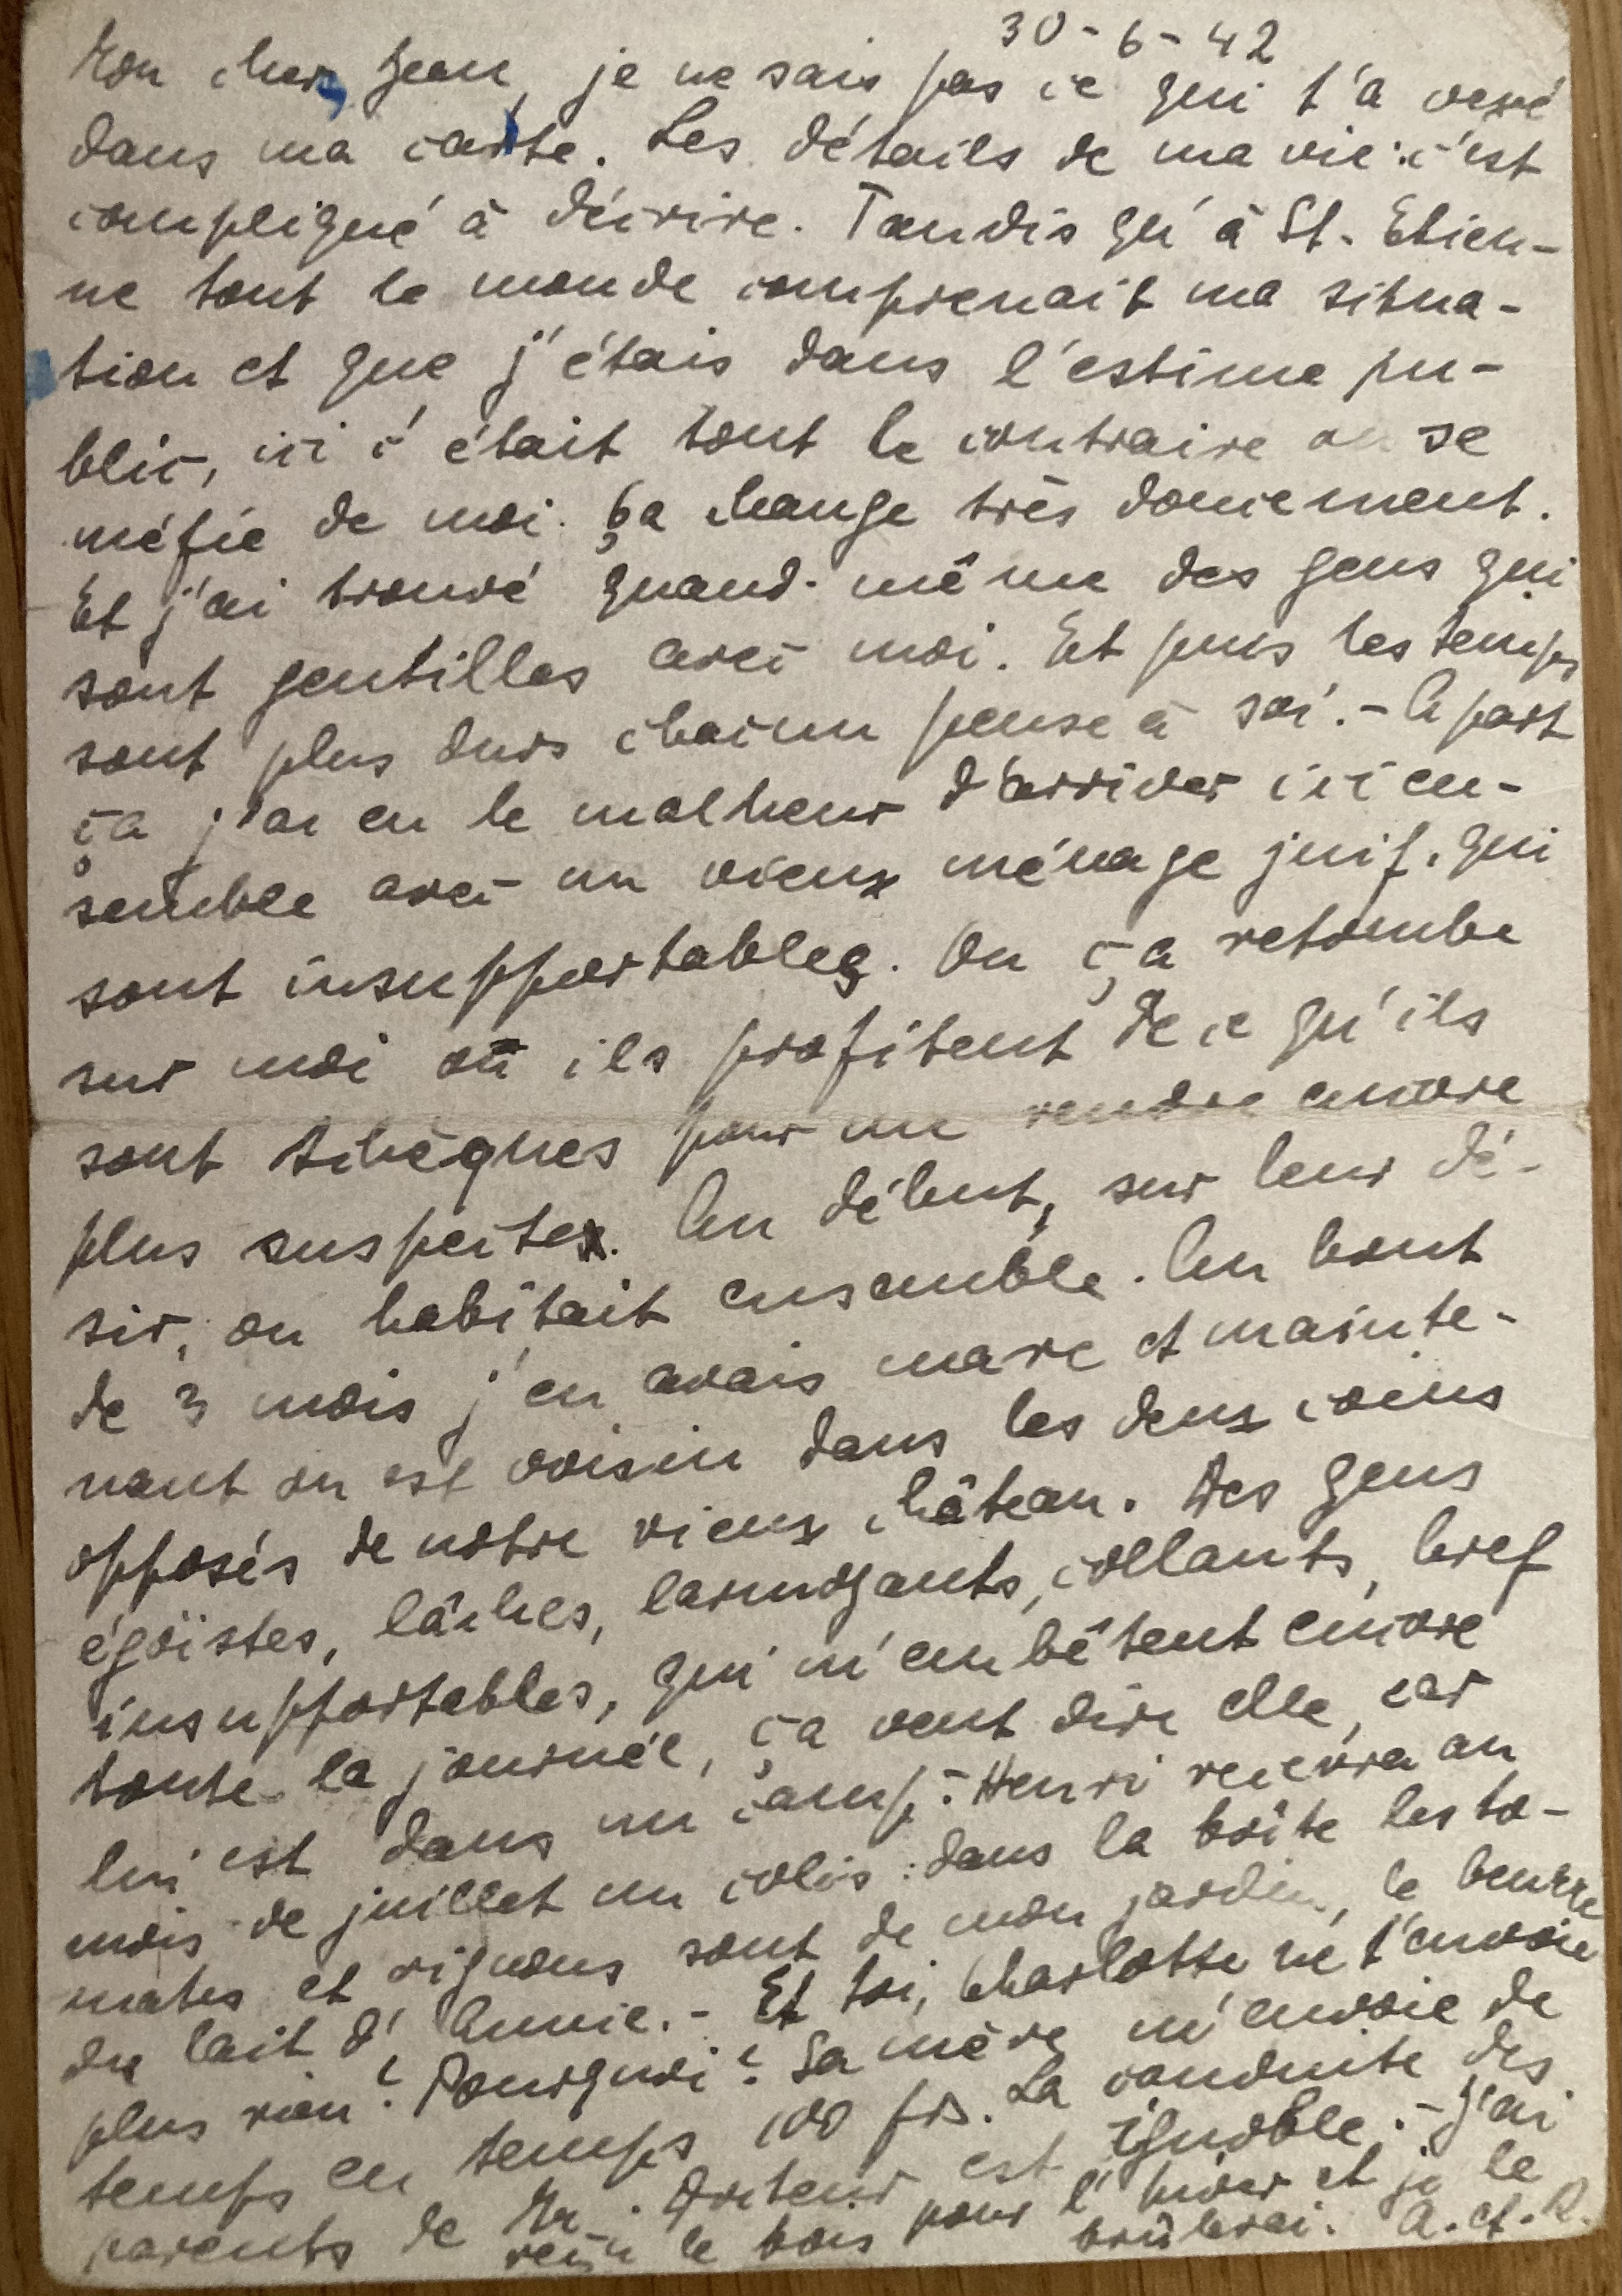 30-6-42
Mon cher Jean, je ne sais pas ce qui t'a vexé
dans ma carte. Les détails de ma vie: c'est
compliqué à décrire. Tandis qu'à St. Etien-
ne tout le monde comprenait ma situa-
tion et que j'étais dans l'estime pu-
blic, ici c'était tout le contraire on se
méfie de moi. Ça change très doucement.
Et j'ai trouvé quand-même des gens qui
sont gentilles avec moi. Et puis les temps
sont plus durs chacun pense à soi. - A part
ça j'ai eu le malheur d'arriver ici en-
semble avec un vieux ménage juif, qui
sont insupportables. Ou ça retombe
sur moi où ils profitent de ce qu'ils
sont tchèques pour me rendre encore
plus suspecte. Au début, sur leur dé-
sir, on habitait ensemble. Au bout
de 3 mois j'en avais marre et mainte-
nant on est voisin dans les deux coins
opposés de notre vieux château. Des gens
égoïstes, lâches, larmoyants, collants, bref
insupportables, qui m'embêtent encore
toute la journée, ça veut dire elle, car
lui est dans un camp. - Henri recevra au
mois de juillet un colis: dans la boîte les to-
mates et rignons sont de mon jardin, le beurre
du lait d'Annie. - Et toi, Charlotte ne t'envoie
plus rien? Pourquoi? Sa mère m'envoie de
temps en temps 100 frs. La conduite des
parents de Mr. est ignoble. - J'ai
reçu le bois pour l'hiver et je le
brûlerai. A. et. R.